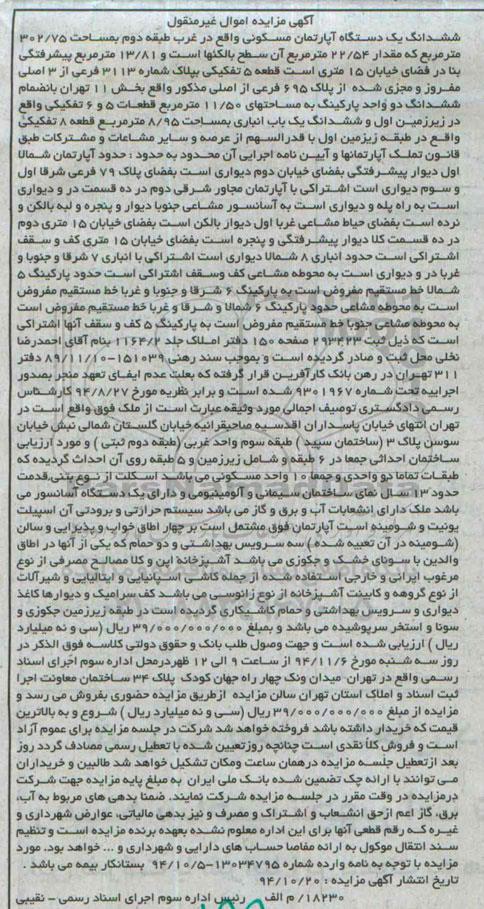 آگهی مزایده اموال غیرمنقول
ششدانگ یک دستگاه آپارتمان مسکونی واقع در غرب طبقه دوم بمساحت ۳۰۲/۷۵
مترمربع که مقدار ۲۲/۵۴ مترمربع آن سطح بالکنها است و ۱۳/۸۱ مترمربع پیشرفتگی
بنا در فضای خیابان ۱۵ متری است قطعه ۵ تفکیکی بپلاک شماره ۳۱۱۳ فرعی از ۳ اصلی
مفروز و مجزی شده از پلاک ۶۹۵ فرعی از اصلی مذکور واقع بخش ۱۱ تهران بانضمام
ششدانگ دو واحد پارکینگ به مساحتهای ۱۱/۵۰ مترمربع قطعات ۵ و ۶ تفکیکی واقع
در زیرزمین اول و ششدانگ یک باب انباری بمساحت ۸/۹۵ مترمربع قطعه ۸ تفکیکی
واقع در طبقه زیرزمین اول با قدرالسهم از عرصه و سایر مشاعات و مشترکات طبق
قانون تملک آپارتمانها و آیین نامه اجرایی آن محدود به حدود : حدود آپارتمان شمالا
اول دیوار پیشرفتگی بفضای خیابان دوم دیواری است بفضای پلاک ۷۹ فرعی شرقا اول
و سوم دیواری است اشتراکی با آپارتمان مجاور شرقی دوم در ده قسمت در و دیواری
است به راه پله و دیواری است به آسانسور مشاعی جنوبا دیوار و پنجره و لبه بالکن و
نرده است بفضای حیاط مشاعی غربا اول دیوار بالکن است بفضای خیابان ۱۵ متری دوم
در ده قسمت کلا دیوار پیشرفتگی و پنجره است بفضای خیابان ۱۵ متری کف و سقف
اشتراکی است حدود انباری ۸ شمالا دیواری است اشتراکی با انباری ۷ شرقا و جنوبا و
غربا در و دیواری است به محوطه مشاعی کف وسقف اشتراکی است حدود پارکینگ ۵
شمالا خط مستقیم مفروض است به پارکینگ ۶ شرقا و جنوبا و غربا خط مستقیم مفروض
است به محوطه مشاعی حدود پارکینگ ۶ شمالا و شرقا و غربا خط مستقیم مفروض است
به محوطه مشاعی جنوبا خط مستقیم مفروض است به پارکینگ ۵ کف و سقف آنها اشتراکی
است که ذیل ثبت ۲۹۳۴۲۳ صفحه ۱۵۰ دفتر املاک جلد ۱۱۶۴/۲ بنام آقای احمدرضا
نخلی محل ثبت و صادر گردیده است و بموجب سند رهنی ۱۵۱۰۳۹-۸۹/۱۱/۱۰ دفتر
۳۱۱ تهران در رهن بانک کارآفرین قرار گرفته که بعلت عدم ایفای تعهد منجر بصدور
اجراییه تحت شماره ۹۳۰۱۹۶۷ شده است و برابر نظریه مورخ ۹۴/۸/۲۷ کارشناس
رسمی دادگستری توصیف اجمالی مورد وثیقه عبارت است از ملک فوق واقع است در
تهران انتهای خیابان پاسداران اقدسیه صاحبقرانیه خیابان گلستان شمالی نبش خیابان
سوسن پلاک ۳ (ساختمان سپید) طبقه سوم واحد غربی (طبقه دوم ثبتی ) و مورد ارزیابی
ساختمان احداثی جمعا در ۶ طبقه و شامل زیرزمین و ۵ طبقه روی آن احداث گردیده که
طبقات تماما دو واحدی و جمعا ۱۰ واحد مسکونی می باشد اسکلت از نوع بتنی،قدمت
حدود ۱۳ سال نمای ساختمان سیمانی و آلومینیومی و دارای یک دستگاه آسانسور می
باشد ملک دارای انشعابات آب و برق و گاز می باشد سیستم حرارتی و برودتی آن اسپیلت
یونیت و شومینه است آپارتمان فوق مشتمل است بر چهار اطاق خواب و پذیرایی و سالن
(شومینه در آن تعبیه شده) سه سرویس بهداشتی و دو حمام که یکی از آنها در اطاق
والدین با سونای خشک و جکوزی می باشد آشپزخانه اپن و کلا مصالح مصرفی از نوع
مرغوب ایرانی و خارجی استفاده شده از جمله کاشی اسپانیایی و ایتالیایی و شیرآلات
از نوع گروهه و کابینت آشپزخانه از نوع زانوسی می باشد کف سرامیک و دیوارها کاغذ
دیواری و سرویس بهداشتی و حمام کاشیکاری گردیده است در طبقه زیرزمین جکوزی و
سونا و استخر سرپوشیده می باشد و بمبلغ ۳۹/۰۰۰/۰۰۰/۰۰۰ ریال (سی و نه میلیارد
ریال ) ارزیابی شده است و جهت وصول طلب بانک و حقوق دولتی کلاسه فوق الذکر در
روز سه شنبه مورخ ۹۴/۱۱/۶ از ساعت ۹ الی ۱۲ ظهردرمحل اداره سوم اجرای اسناد
رسمی واقع در تهران- میدان ونک چهار راه جهان کودک پلاک ۳۴ ساختمان معاونت اجرا
ثبت اسناد و املاک استان تهران سالن مزایده ازطریق مزایده حضوری بفروش می رسد و
مزایده از مبلغ ۳۹/۰۰۰/۰۰۰/۰۰۰ ریال (سی و نه میلیارد ریال ) شروع و به بالاترین
قیمت که خریدار داشته باشد فروخته خواهد شد شرکت در جلسه مزایده برای عموم آزاد
است و فروش کلا نقدی است چنانچه روزتعیین شده با تعطیل رسمی مصادف گردد روز
بعد ازتعطیل جلسه مزایده درهمان ساعت ومکان تشکیل خواهد شد طالبین و خریداران
می توانند با ارائه چک تضمین شده بانک ملی ایران به مبلغ پایه مزایده جهت شرکت
درمزایده در وقت مقرر در جلسه مزایده شرکت نمایند. ضمنا بدهی های مربوط به آب،
برق، گاز اعم ازحق انشعاب و اشتراک و مصرف و نیز بدهی مالیاتی، عوارض شهرداری و
غیره که رقم قطعی آنها برای این اداره معلوم نشده بعهده برنده مزایده است و تنظیم
سند انتقال موکول به ارائه مفاصا حساب های دارایی و شهرداری و ... خواهد بود. مورد
مزایده با توجه به نامه وارده شماره ۱۳۰۳۴۷۹۵-۹۴/۱۰/۵ بستانکار بیمه می باشد .
تاریخ انتشار آگهی مزایده : ۹۴/۱۰/۲۰
۱۸۲۳۰/ م الف رئیس اداره سوم اجرای اسناد رسمی - نقیبی